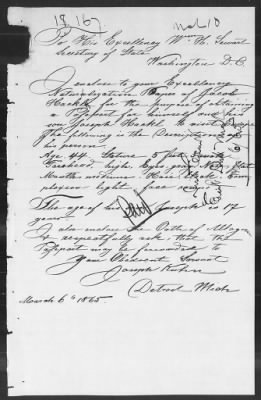 18,167
Mch 10
To His Excellency Wm H. Sewart
Secretary of State
Washington D.C.
I enclose to your Excellency
Naturalization Papers of Jacob
Hackl for the purpose of obtaining
a Passport for himself and his
son Joseph Hackl to visit Europe
The following is the Description of
his person
Age 44 Stature 5 feet
Forehead high Eyes grey Nose flat
Mouth medium Hair black Com
plexion light face
The age of his Joseph is 17
years
I also enclose the Oath of Allegan
& respectfully ask that the
Passport may be forwarded to
Your Obedient Servant
Joseph Kuhn
Detroit Mich
March 6th 1865